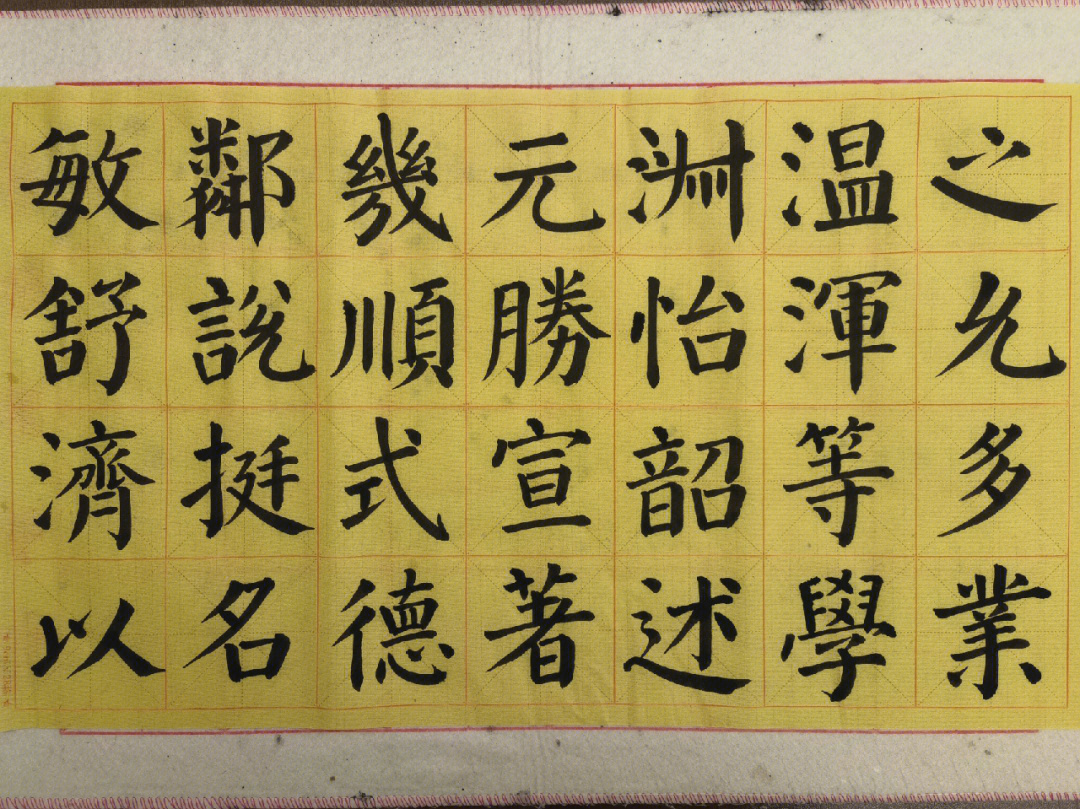 敏鄰幾元淵温之
舒說順勝怡渾允
濟挺式宣韶等多
以名德著述學業